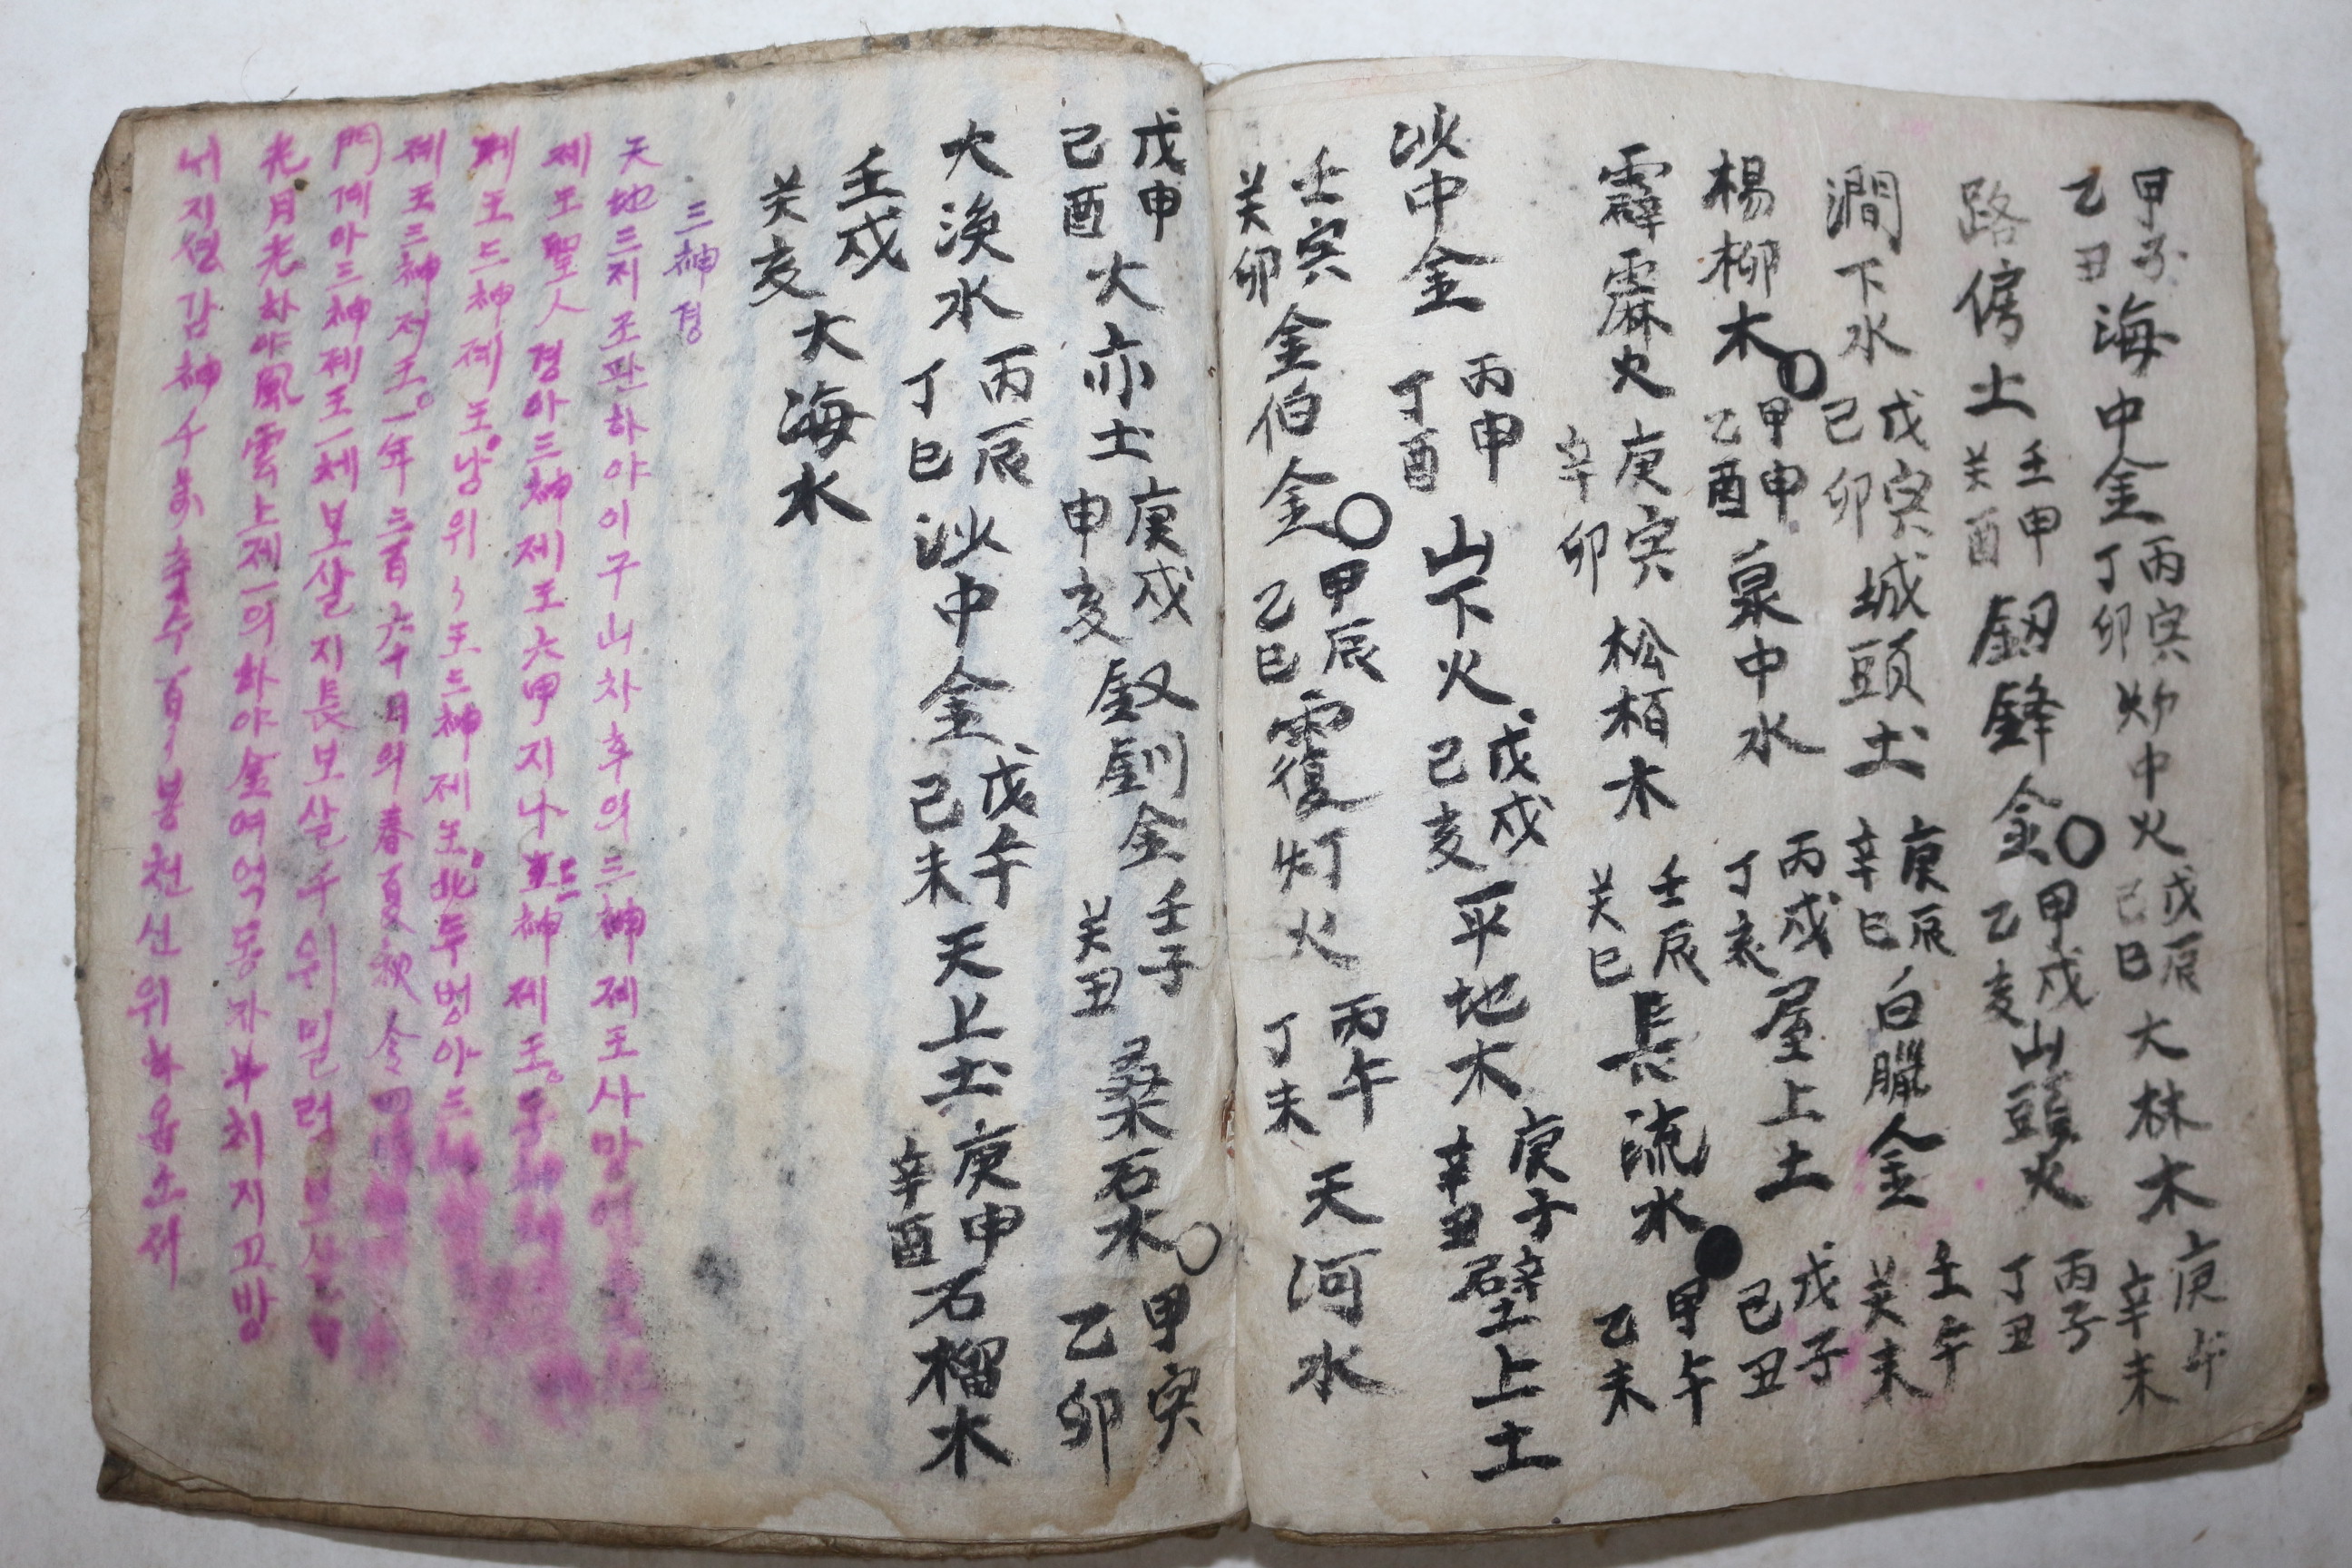 甲子乙丑海中金丙寅丁卯炉中火戊辰己巳大林木庚午辛未
路傍土壬申关酉釼鋒金○甲戌乙亥山頭火丙子丁丑
澗下水戊寅己卯城頭土庚辰辛巳白臘金壬午关未
楊柳木○甲申乙酉泉中水丙戌丁亥屋上土戊子己丑
霹靂火庚寅辛卯松栢木壬辰关巳長流水●甲午乙未
沙中金丙申丁酉山下火戊戌己亥平地木庚子辛丑壁上土
壬寅关卯金伯金○甲辰乙巳覆灯火丙午丁未天河水
戊申己酉大亦土庚戌申亥釵釧金壬子关丑桑石水○甲寅乙卯
大涣水丙辰丁巳沙中金戊午己未天上土庚申辛酉石榴木
壬戌关亥大海水
三神경
天地三지조판하야이구山차후의三神제王사망
제王聖人경아三神제王六甲지나三神제王
제王三神제王낭위王三神제王北두벙아三
제王三神저王一年三百六十日의春夏秋
門게아三神제王一체보살지長보살
光月光하야風雲上제一의하야金여억동자부치지고방
너지셩감神千百봉천신위하옵소서